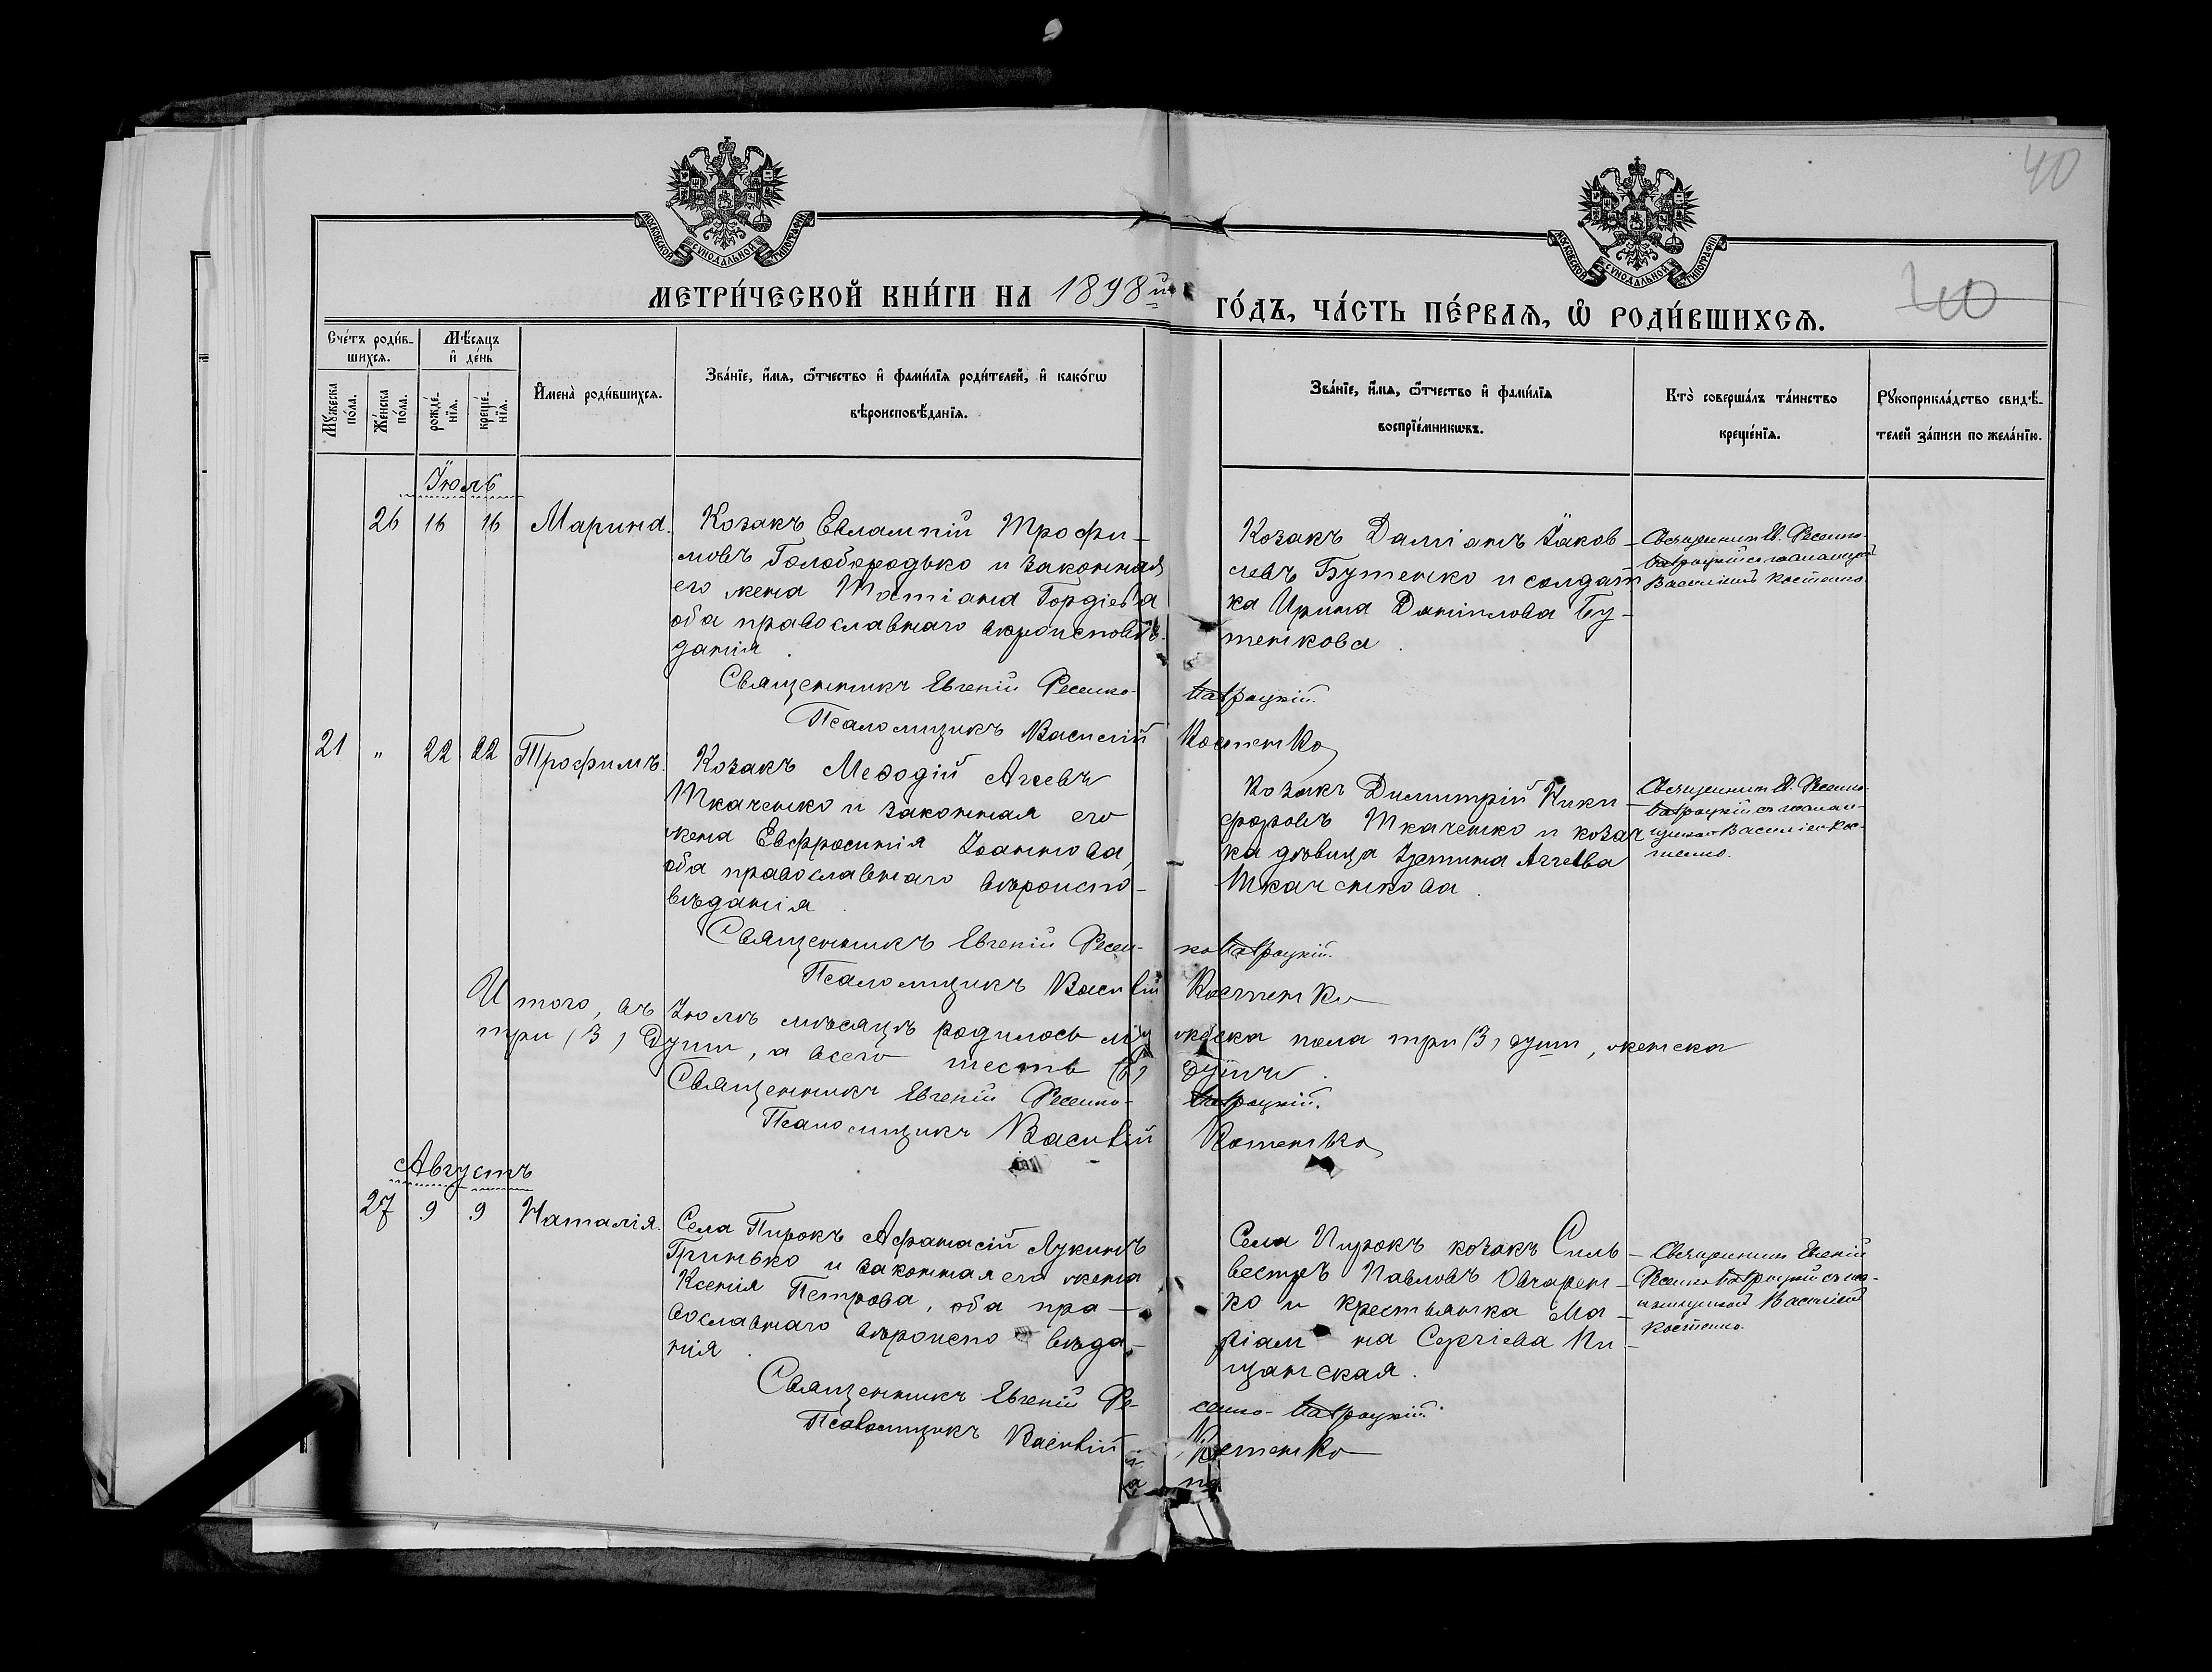 40
МОСКОВСКОЙ СУНОДАЛЬНОЙ ТИПОГРАФІИ
МОСКОВСКОЙ СУНОДАЛЬНОЙ ТИПОГРАФІИ
40
МЕТРИ́ЧЕСКОЙ КНИ́ГИ НА 1898й ГО́ДЪ, ЧА́СТЬ ПЕ́РВАѦ, Ѿ РОДИ́ВШИХСѦ.
Сче́тъ роди́в-
шихсѧ.
Мꙋжеска по́ла.
Же́нска по́ла.
Мѣ́сѧцъ
и҆ де́нь
рожде́-
нїѧ.
креще́-
нїѧ.
И҆мена̀ роди́вшихсѧ.
Зва́нїе, и҆́мѧ, ѻ҆́тчество и҆ фами́лїѧ роди́телей, и҆ како́гѡ
вѣроисповѣ́данїѧ.
Зва́нїе, и҆́мѧ, ѻ҆́тчество и҆ фами́лїѧ
воспрїе́мникѡвъ.
Кто̀ соверша́лъ та́инство
креще́нїѧ.
Рꙋкоприкла́дство свидѣ́-
телей за́писи по жела́нїю.
Іюль
26 16 16 Марина.
Козакъ Евлампій Трофи-
мовъ Голобородько и законная
его жена Татіана Гордіева
оба православнаго вѣроисповѣ-
данія.
Козакъ Даміанъ Іаков-
левъ Бутенко и солдат
ка Ирина Даніилова Бу-
тенкова.
Священник Е. Ресенко-
Василіемъ Костенко.
Священникъ Евгеній Ресенко-
Псаломщикъ Василій Костенко
21 " 22 22 Трофимъ.
Козакъ Меѳодій Аггеевъ
Ткаченко и законная его
жена Евфросинія Іоаннова,
оба православнаго вѣроиспо-
вѣданія.
Козакъ Димитрій Ники-
форовъ Ткаченко и козач
ка дѣвица Іустина Аггеева
Ткаченкова.
Священник Е. Ресенко-
Василіем Кос-
тенко.
Священникъ Евгеній Ресен-
Псаломщикъ Василій Костенко
Итого, въ Іюлѣ мѣсяцѣ родилось муж жеска пола три (3) души, женска
три (3) души, а всего шесть (6) душъ.
Священникъ Евгеній Ресенко-
Псаломщикъ Василій Костенко
Августъ
27 9 9 Наталія.
Села Пирокъ Афанасій Лукинъ
Гринько и законная его жена
Ксенія Петрова, оба пра-
вославнаго вѣроиспо вѣда-
нія.
Села Пирокъ козакъ Силь-
вестръ Павловъ Овчарен-
ко и крестьянка Ма-
ріам на Сергіева Пи-
щанская.
Священник Евгеній
Василіем
Костенко.
Священникъ Евгеній Ре-
сенко-
Псаломщикъ Василій Костенко